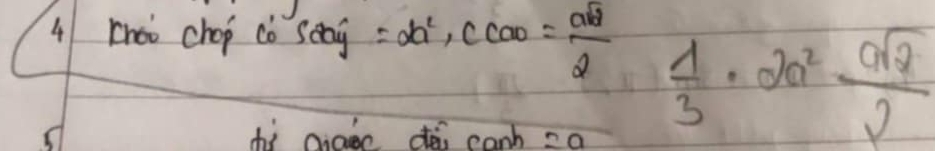 4 khối chóp có Sđáy = 2a², c cao = a√2/2 1/3 . 2a² a√2/2
5 tứ giác đều cạnh = a